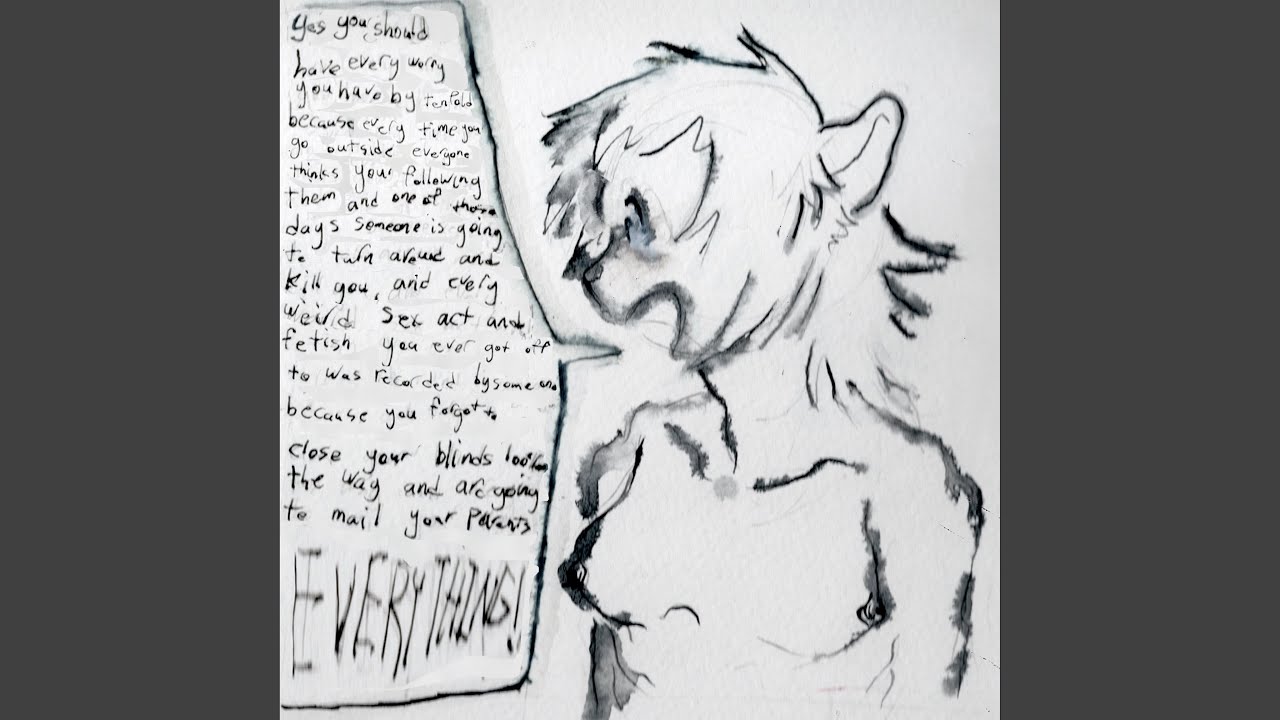 Yes you should
have every worry
you have by tenfold
because every time you
go outside everyone
thinks your following
them and one of those
days someone is going
to turn around and
kill you, and every
weird sex act and
fetish you ever got off
to was recorded by some one
because you forgot to
close your blinds
the way and are going
to mail your Parents
EVERYTHING!